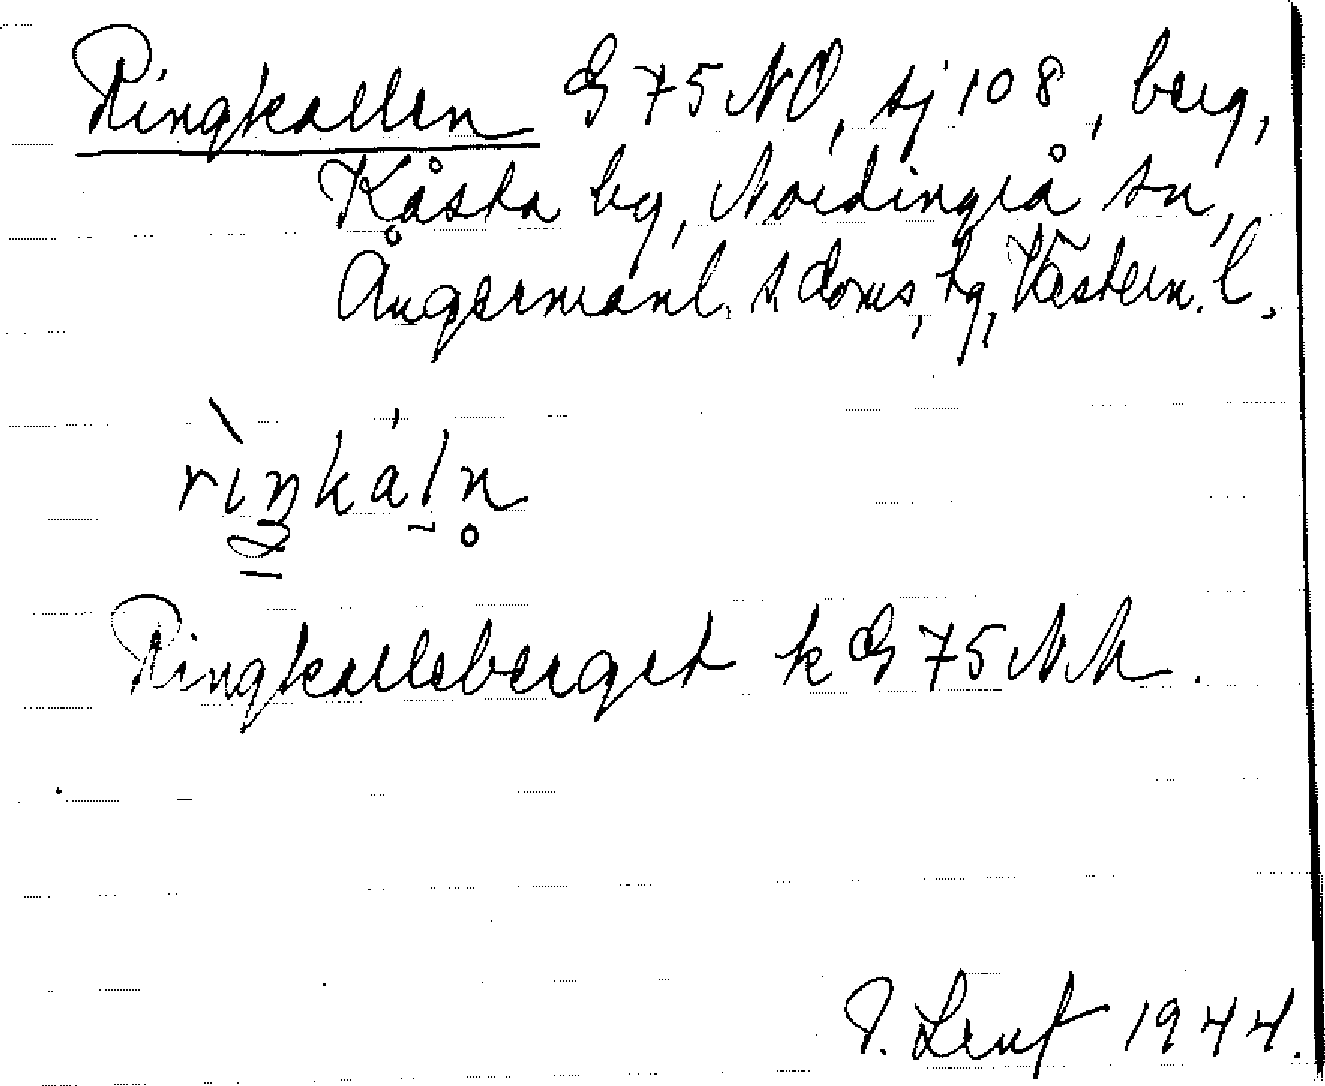 Ringkallen G 75 NO, sj 108, berg,
Kåsta by, Nordingrå sn,
Ångermanl. s. doms, tg, Västern. l.
rìŋkáln̥
Ringkalleberget k G 75 NM.
P. Lenf 1944.